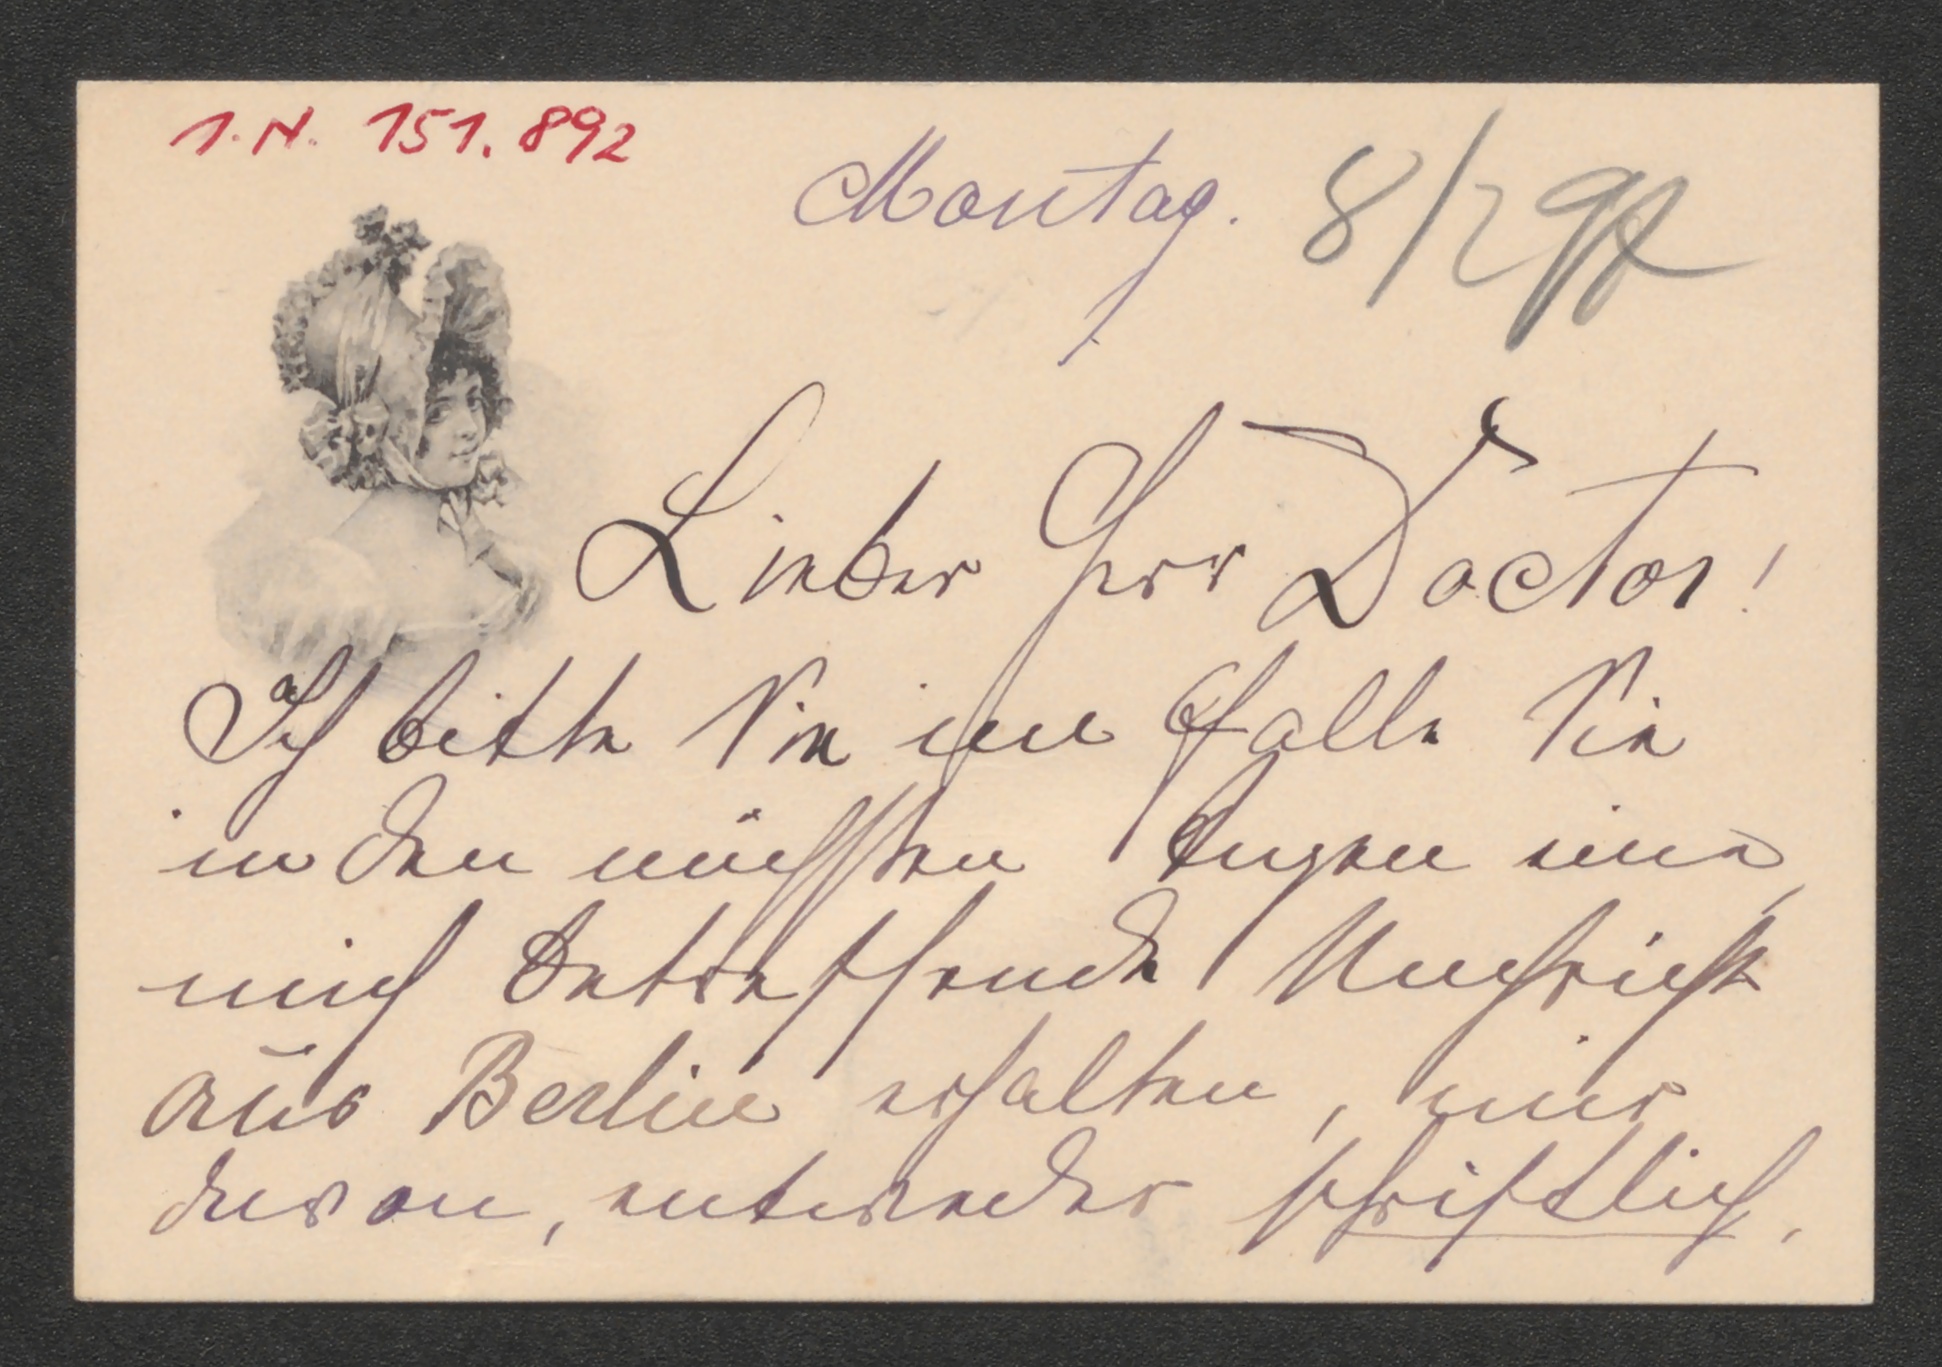 I.N. 151.892
Montag. 8/2 97
Lieber Herr Doctor!
Ich bitte Sie im Falle Sie
in den nächsten Tagen eine,
mich betreffende Nachricht
aus Berlin erhalten, mir
davon, entweder schriftlich,